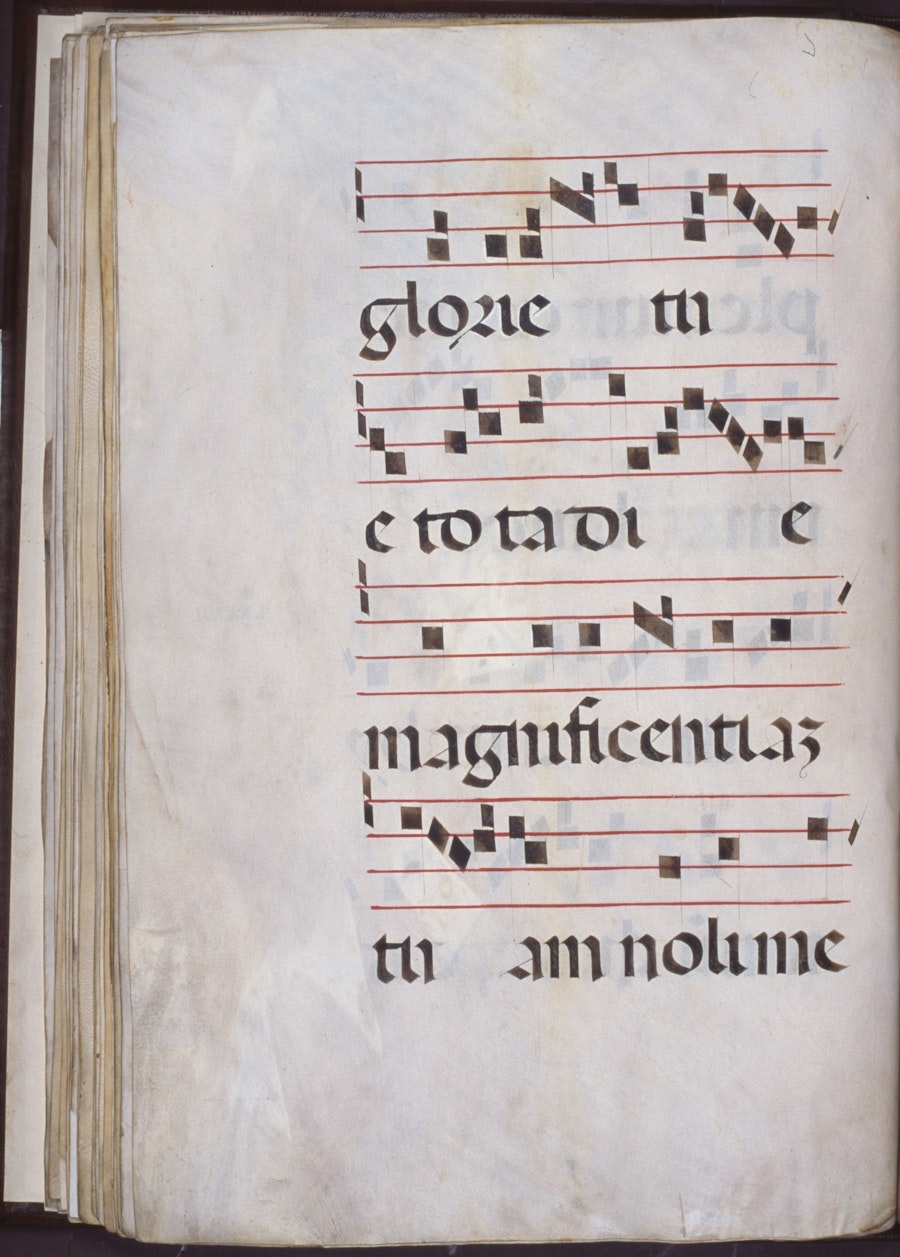 glorie tu
e to ta di e
magnificentiaz
tu am noli me